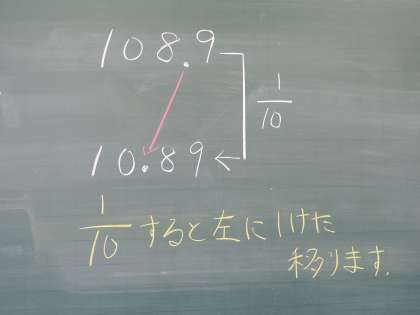 108.9
1/10
10.89
1/10 すると左に1けた
移ります.